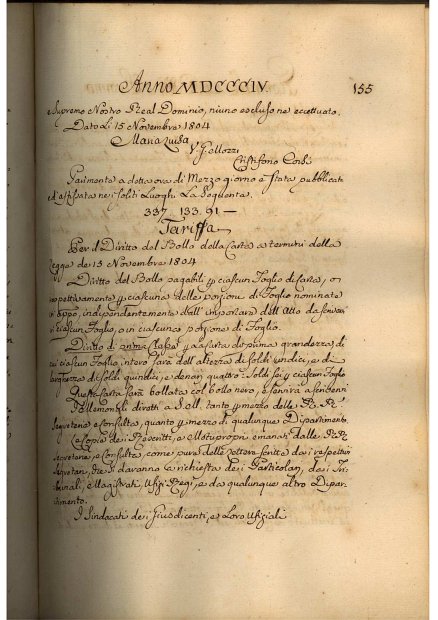 Anno MDCCCIV 155
e Supremo Nostro Real Dominio, niuno escluso ne eccettuato.
Dato Li 15 Novembre 1804
Maria Luisa
V.
Cristifono
Parimente a detta ora di Mezzo giorno è stata pubblicata
ed affissata nei soliti Luoghi La Seguente
337 133.91 —
Tariffa
Per il Diritto del Bollo della Carta a termini della
Legge de 15 Novembre 1804
Diritto del Bollo pagabili p ciascun Foglio di Carta, o
respettivamente p ciascuna delle porzioni di Foglio nominate
indipendentemente dall' importare dell' Atto da scriversi
in ciascun Foglio, o in ciascuna porzione di Foglio.
Diritto di prima Classe p la Carta di prima grandezza, di
cui ciascun Foglio intero sarà dell' altezza di soldi undici, e di
larghezza di soldi quindici, e denari quattro: Soldi sei p ciascun Foglio
Questa Carta sarà bollata col bollo nero, e servirà a scrivervi
i Memoriali diretti a S. M. tanto p mezzo delle R. R.
Segreterie e Consulta, quanto p mezzo di qualunque Dipartimento,
e Copie dei Rescritti, e Motupropri emanati dalle R. R.
Segreterie, e Consulta, come pure delle Lettere scritte dai respettivi
Segretari, che si daranno a richiesta dei Particolari, dai Tri-
bunali, e Magistrati, Ufizi Regi, e da qualunque altro Dipar-
timento.
I Sindacati dei Giusdicenti, e Loro Ufiziali